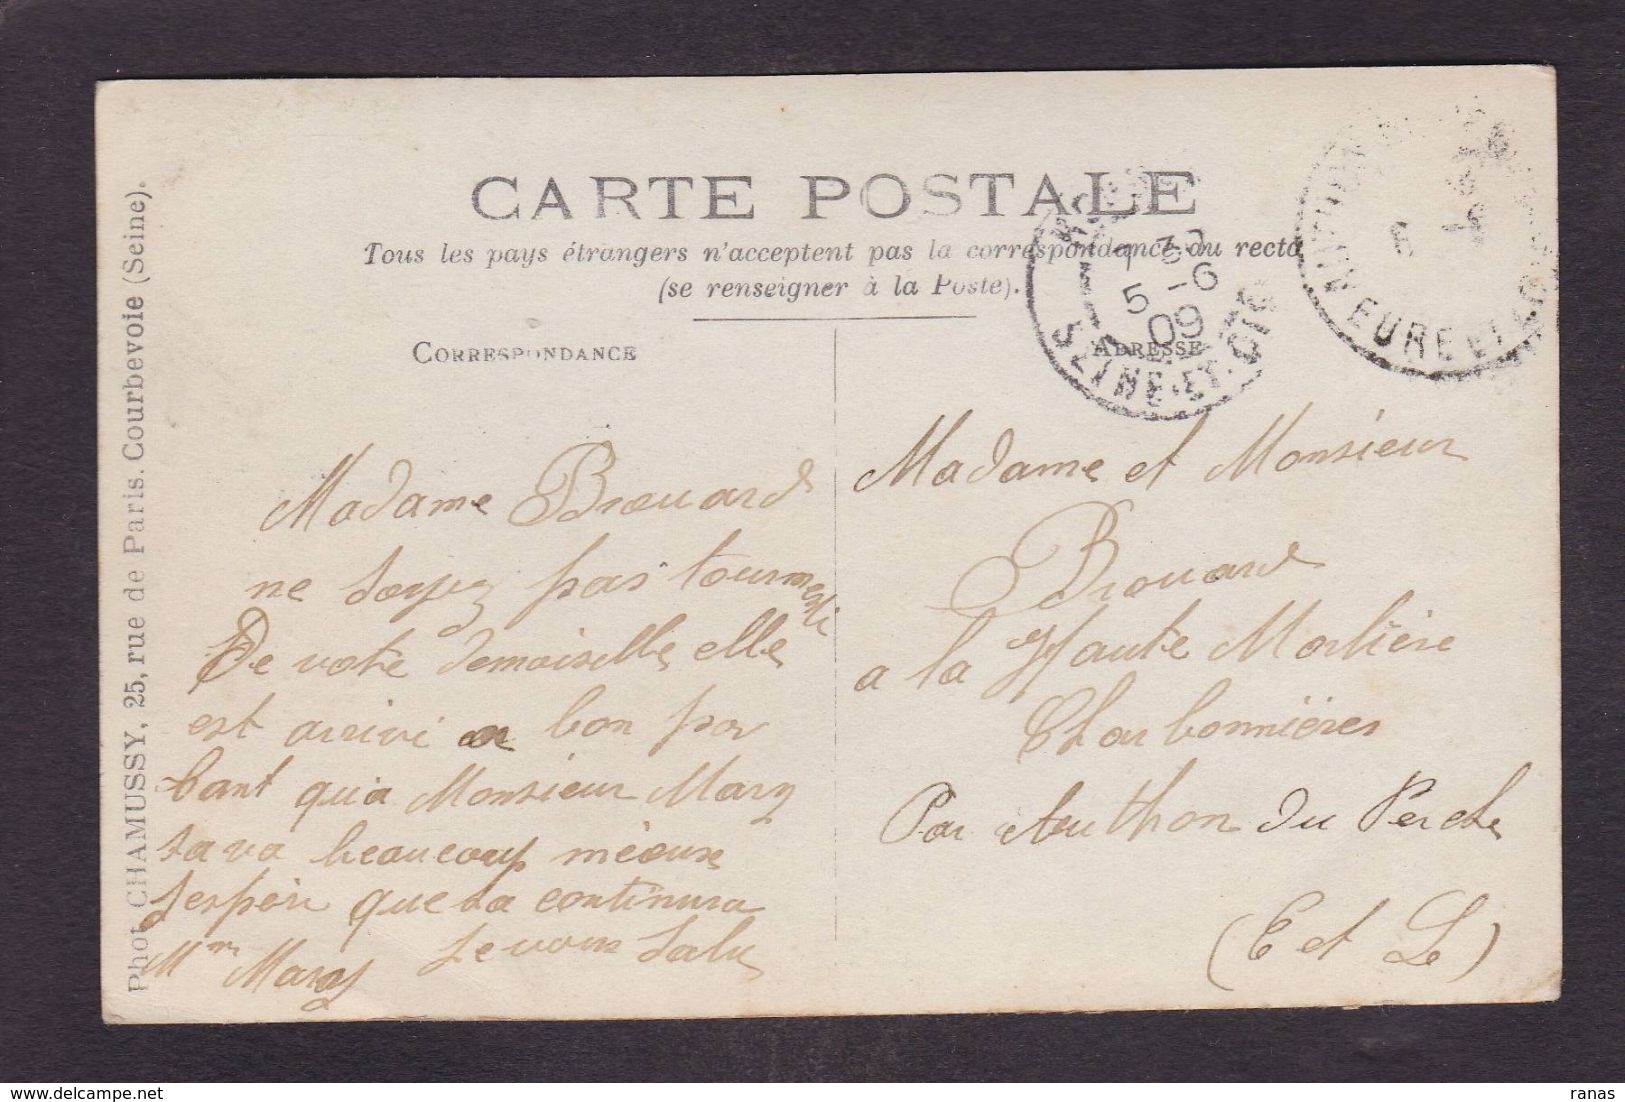 CARTE POSTALE
Tous les pays étrangers n'acceptent pas la correspondance au recto
(se renseigner à la Poste).
CORRESPONDANCE
ADRESSE
5 -6
09
SEINE-ET-OISE
EURE ET
Phot. CHAMUSSY, 25, rue de Paris. Courbevoie (Seine).
Madame Brouard
ne soyez pas tourmenté
De vote demoiselle, elle
est arrivé a bon por
tant qu'a Monsieur Mary
sava beaucoup mieuse
Jespère que sa continura
Je vous salu
Mme Mary
Madame et Monsieur
Brouard
a la Haute Morlière
Charbonnières
Par Authon du Perche
(E et L)
ranas